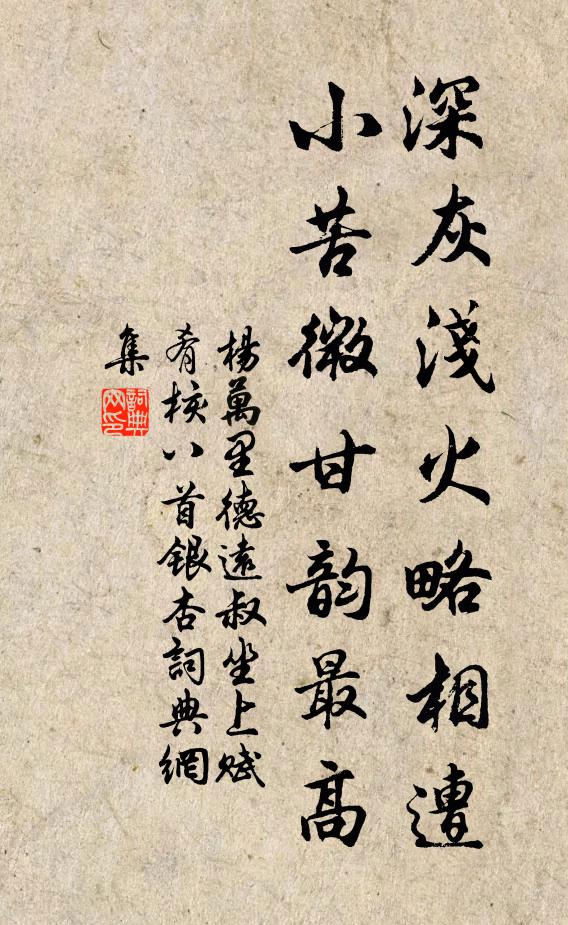 深灰淺火略相遭
小苦微甘韵最高
楊萬里德遠叔坐上賦
肴核八首銀杏詞典網
集
詞典
網印